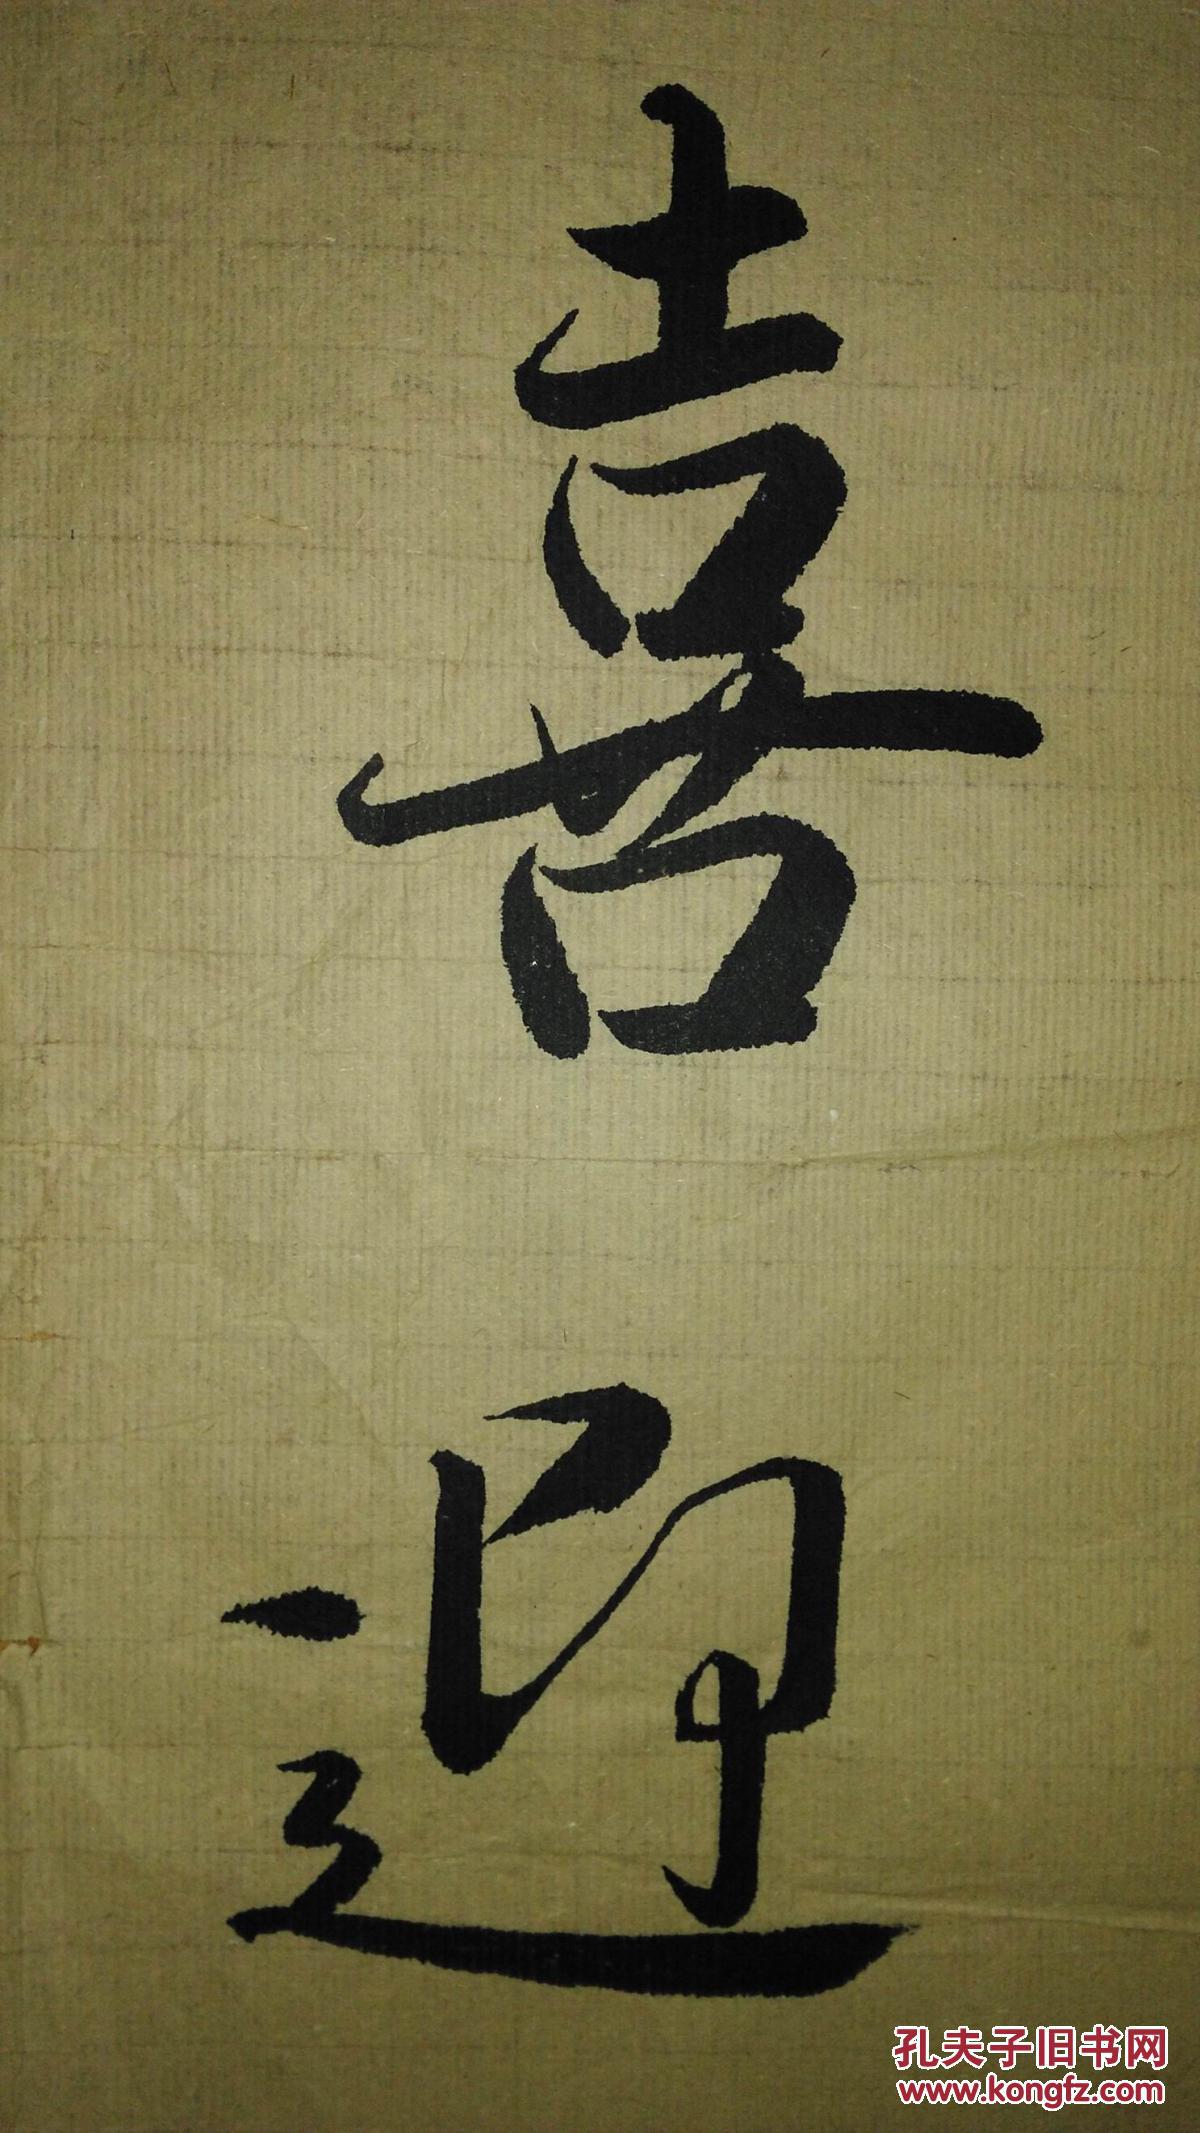 喜迎
孔夫子旧书网
www.kongfz.com